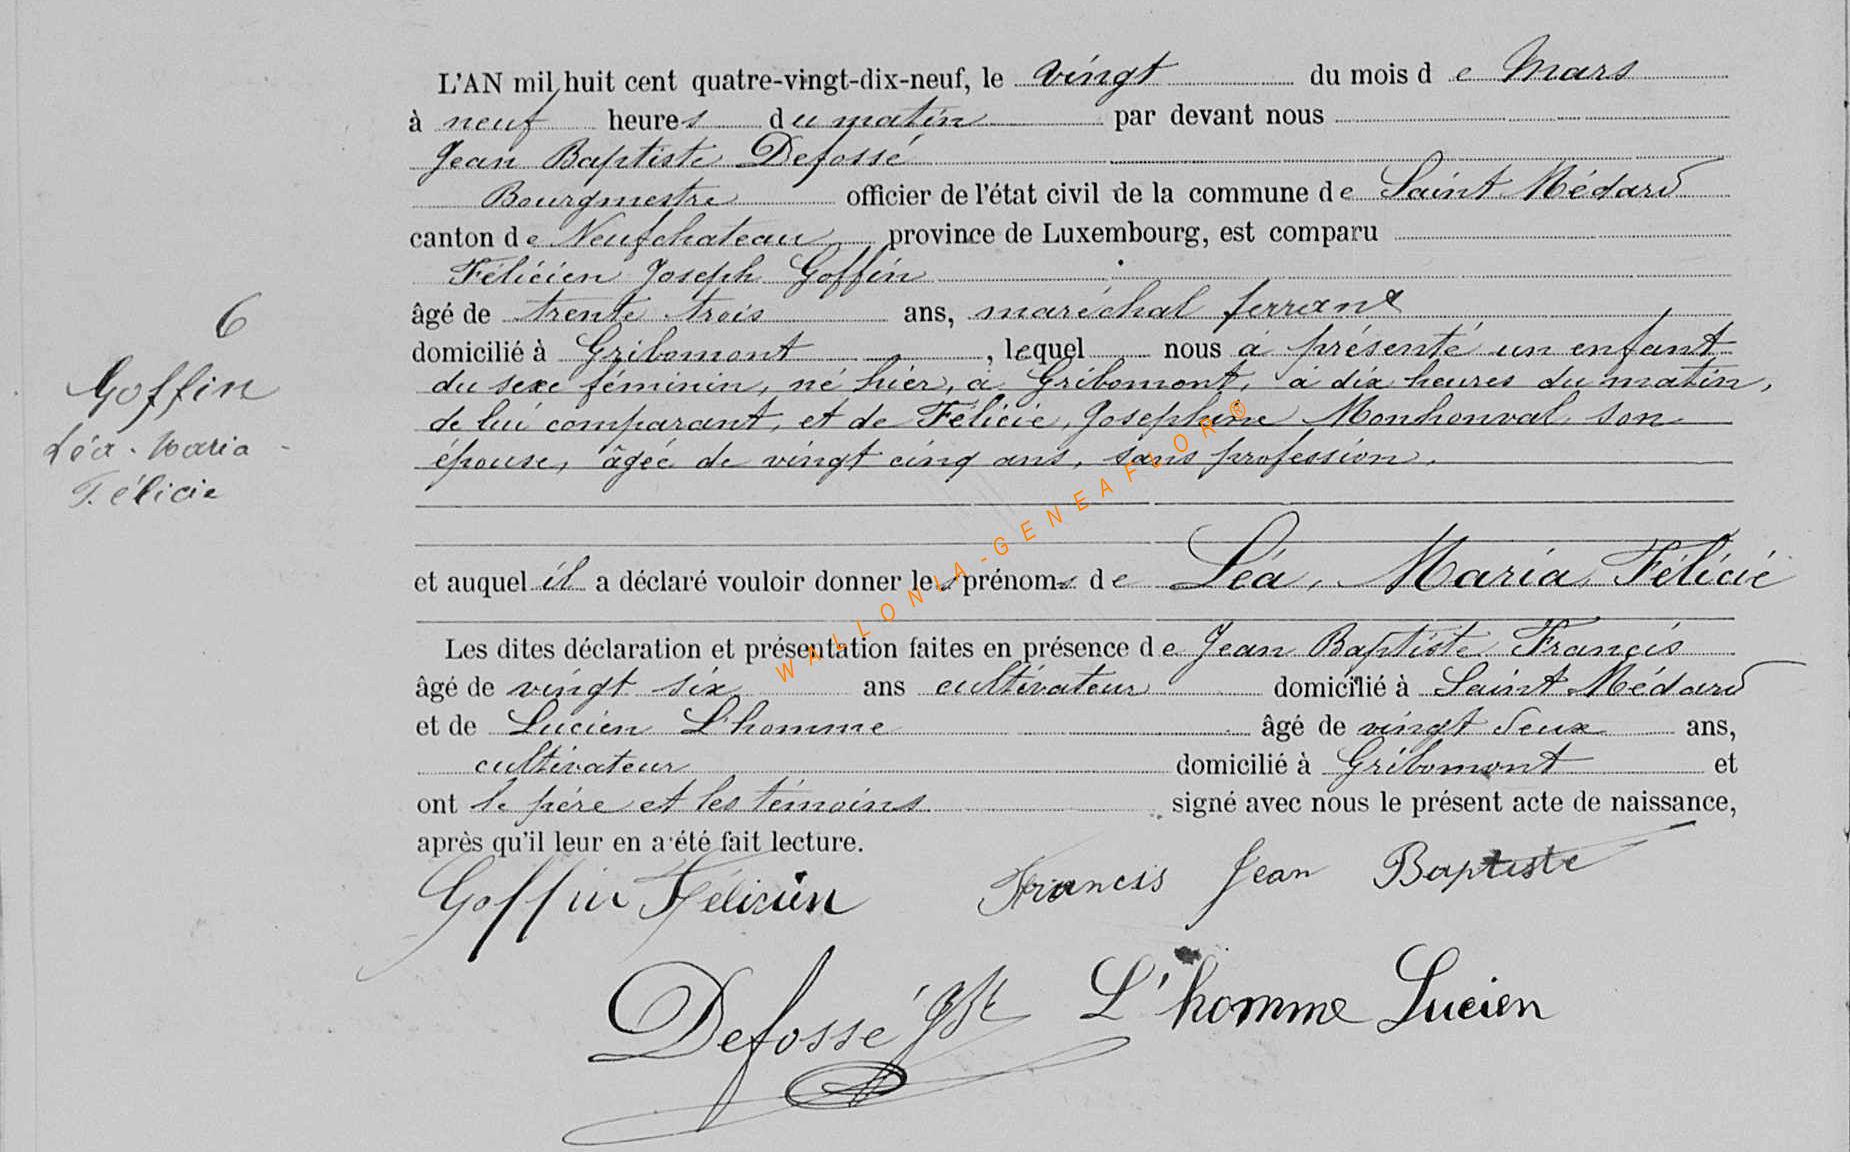 L'AN mil huit cent quatre-vingt-dix-neuf, le vingt du mois de Mars
à neuf heures du matin par devant nous
Jean Baptiste Defossé
Bourgmestre officier de l'état civil de la commune de Saint Médard
canton de Neufchateau province de Luxembourg, est comparu
Félicien Joseph Goffin
âgé de trente trois ans, maréchal ferrant
domicilié à Gribomont, lequel nous a présenté un enfant
du sexe féminin, né hier, à Gribomont, à dix heures du matin,
de lui comparant, et de Félicie, Josephine Monhonval, son
épouse, âgée de vingt cinq ans, sans profession.
6
Goffin
Léa - Maria -
Félicie
et auquel il a déclaré vouloir donner les prénoms de Léa, Maria, Félicie
Les dites déclaration et présentation faites en présence de Jean Baptiste Francis
âgé de vingt six ans cultivateur domicilié à Saint Médard
et de Lucien L'homme âgé de vingt deux ans,
cultivateur domicilié à Gribomont et
ont le père et les témoins signé avec nous le présent acte de naissance,
après qu'il leur en a été fait lecture.
Goffin Félicien Francis Jean Baptiste
Defossé JBte L'homme Lucien
WALLONIA-GENEAFLOR®